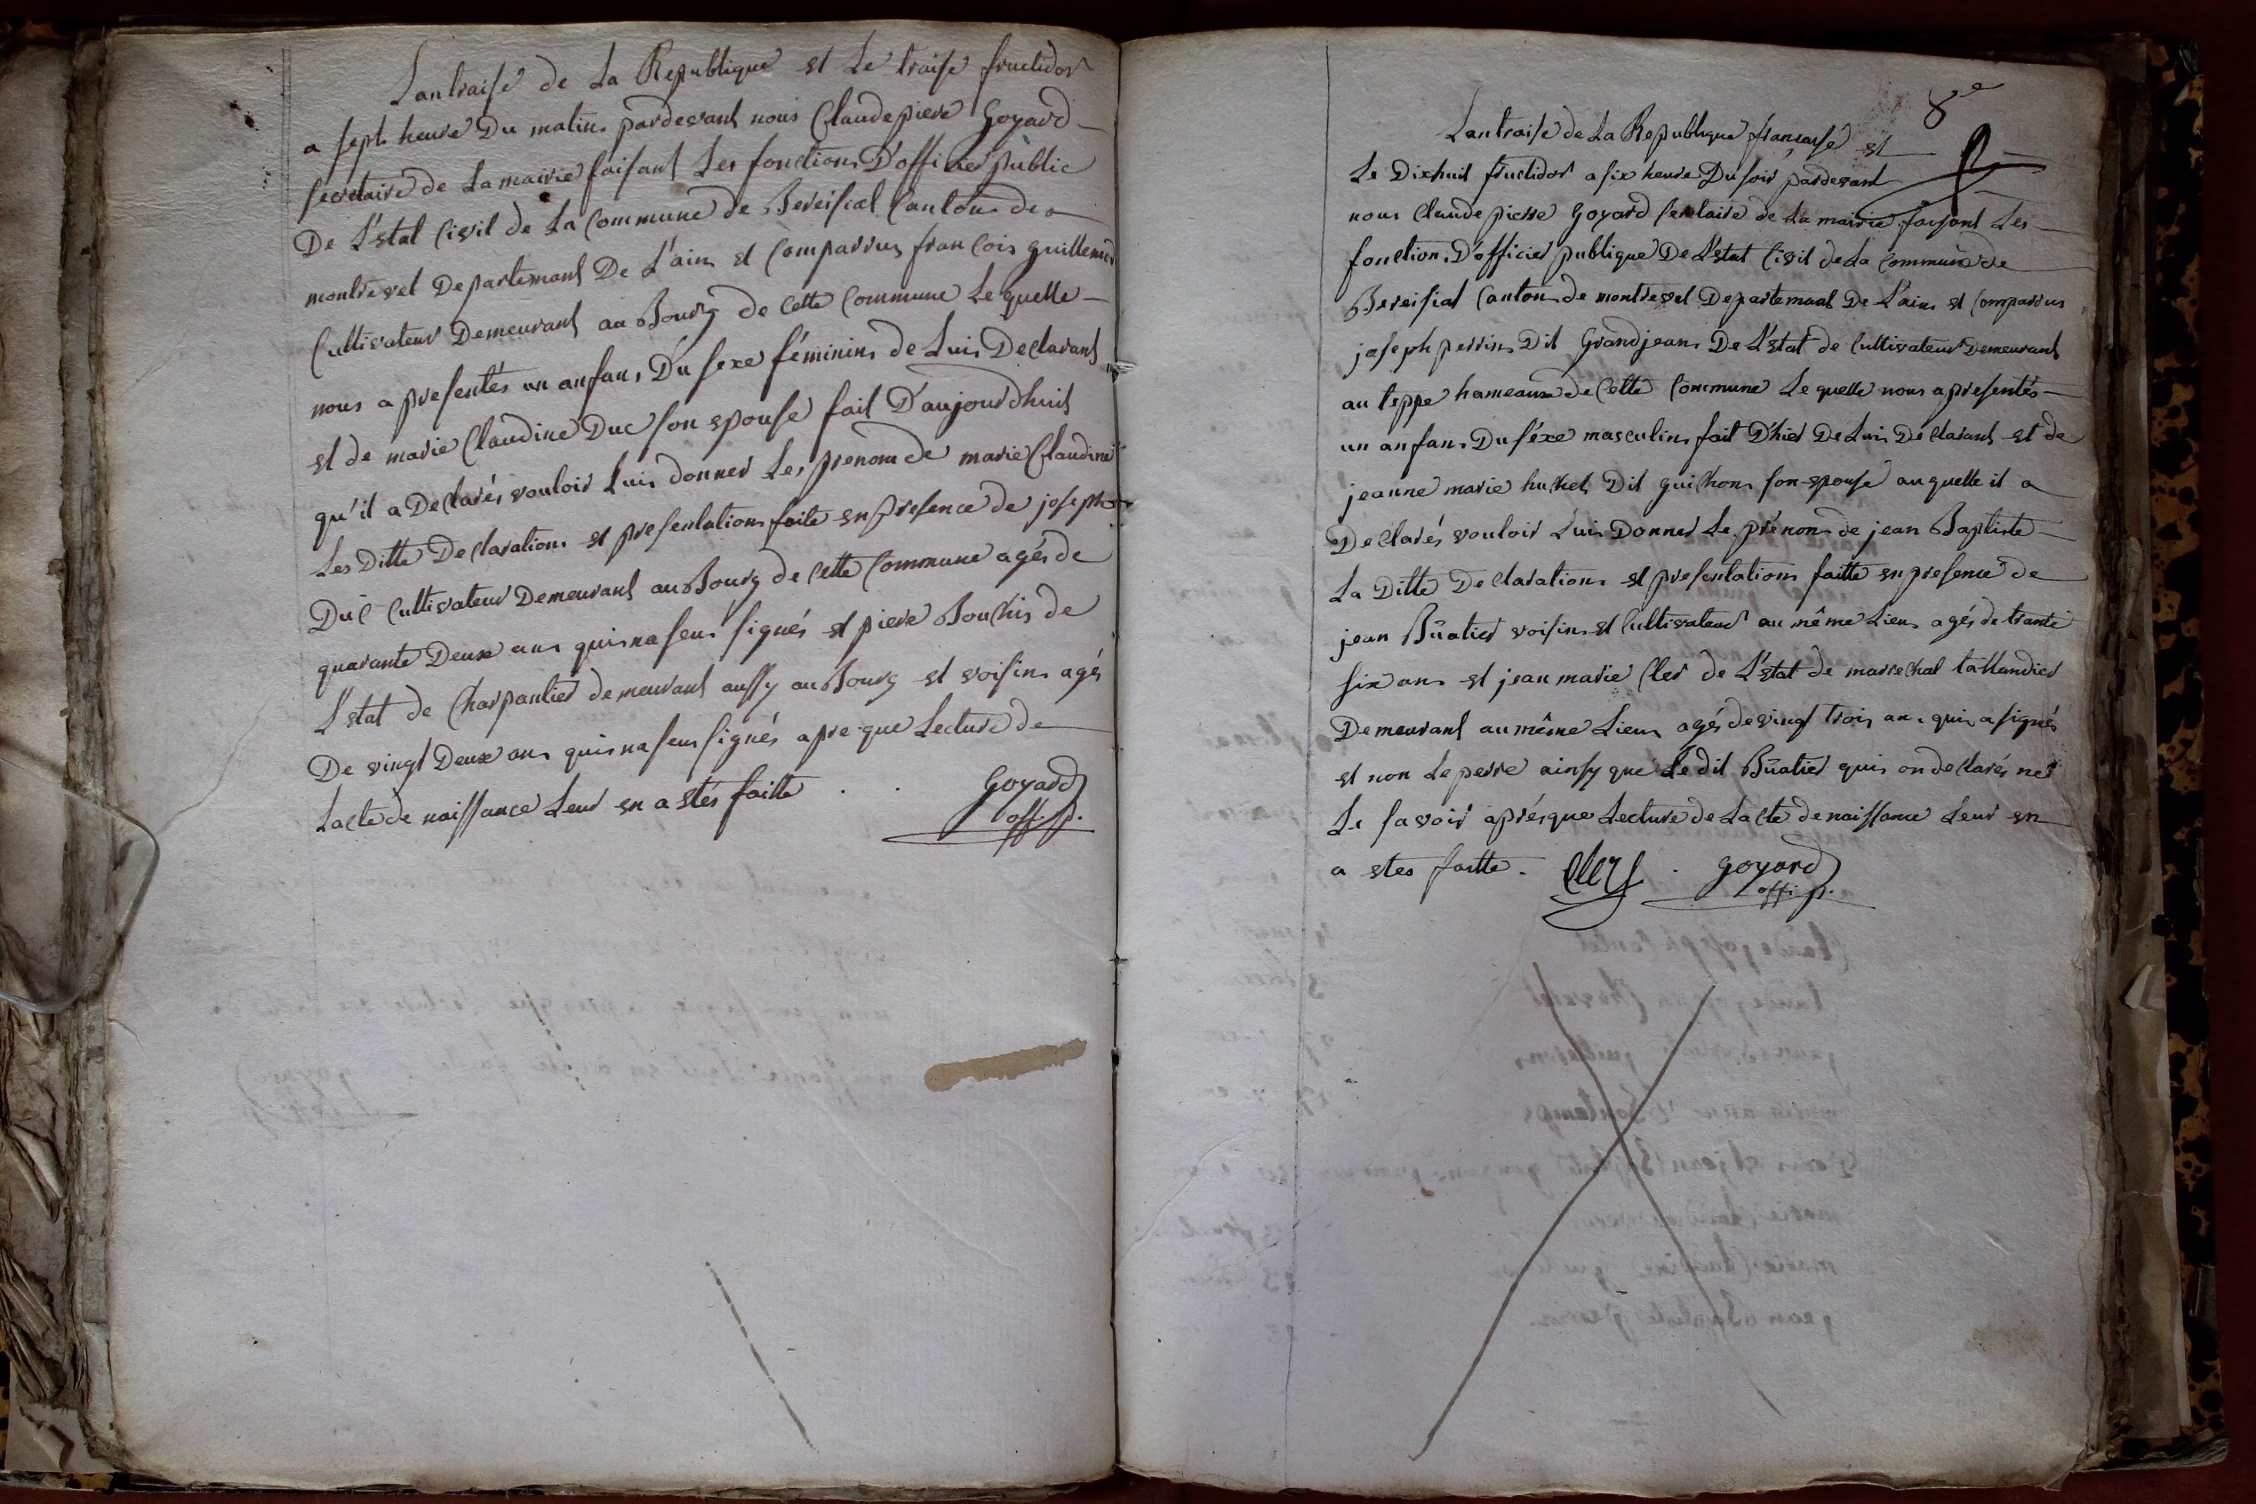 Lantraise de La Republique et Le traise fructidor
a sept heure Du matin pardevant nous Claudepiere Goyard
secretaire de La mairie faisant Les fonctions D'officier public
De L'estat Civil de La Commune de Bereisiat Canton de
montrevel Departemant De L'ain et Comparrus francois guillemin
Cultivateur Demeurant au Bourg de Cette Commune Le quelle
nous a presentés un anfans Du sexe féminin de Lui Declarant
et de marie Claudine Duc son epouse fait D'aujourdhuit
qu'il a Declarés vouloir Luis donner Les prenom de marie Claudine
Les Ditte Declaration et presentation faite en presence de joseph
Duc Cultivateur Demeurant au Bourg de Cette Commune agés de
quarante Deux ans quis na seus signés et piere Bouchis de
L'estat de Charpantier demeurant aussy au Bourg et voisin agés
De vingt Deux ans quis na seus signés apre que Lecture de
Lacte de naissance Leur en a etés faitte . . Goyard
off. p.
8e
Lantraise de La Republique francaise et
Le Dixhuit fructidor a six heure Du soir pardevant
nous Claude pierre Goyard secretaire de La mairie faisant Les
fonction D'officier publique De L'estat Civil de La Commune de
Bereisiat Canton de montrevel Departemant De L'ain et Comparrus
joseph perrin Dit Grandjean De L'estat de Cultivateur Demeurant
au teppe hameaux de Cette Commune Le quelle nous a presentés
un anfans Du séxe masculin fait D'hier De Luis Declarant et de
jeanne marie huchet Dit guichon son epouse auquelle il a
Declarés vouloir Luis Donner Le prénom de jean Baptiste
La Ditte Declaration et presentation faitte en presence de
jean Buatier voisin et Cultivateur au même Lieu agés de trante
six ans et jean marie Cler de L'estat de marrechal tallandier
Demeurant au même Lieu agés de vingt trois ans quis a signés
et non Le perre ainsy que Le dit Buatier quis on declarés ne
Le savoir aprés que Lecture de Lacte de naissance Leur en
a etes faitte . Clerc . goyard
off. p.